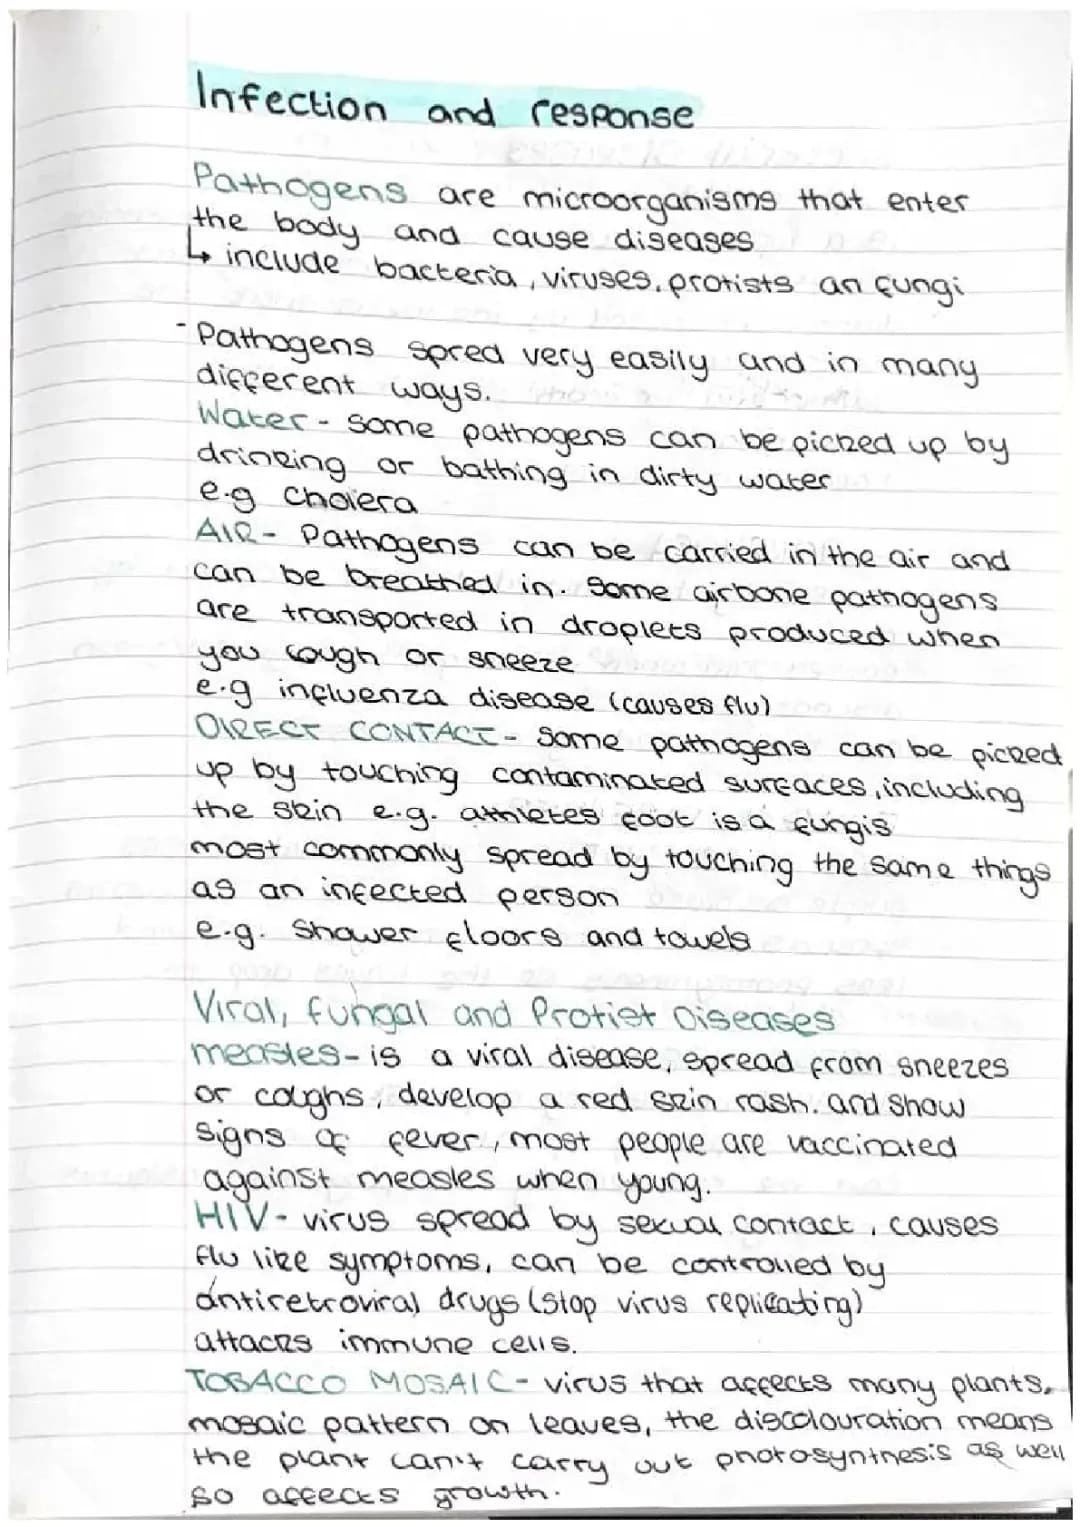 Infection and response
Pathogens are microorganisms that enter
the body and cause diseases
↳ include bacteria, viruses, protists an fungi
- Pathogens spred very easily and in many
different ways.
Water - some pathogens can be picked up by
drinking or bathing in dirty water
e.g cholera
AIR - Pathogens can be carried in the air and
can be breathed in. Some airbone pathogens
are transported in droplets produced when
you cough or sneeze
e.g influenza disease (causes flu)
DIRECT CONTACT - Some pathogens can be picked
up by touching contaminated surfaces, including
the skin e.g. athletes foot is a fungis
most commonly spread by touching the same things
as an infected person
e.g. Shower floors and towels
Viral, fungal and Protist Diseases
measles - is a viral disease, spread from sneezes
or coughs, develop a red skin rash. and show
signs of fever, most people are vaccinated
against measles when young.
HIV - virus spread by sexual contact, causes
flu like symptoms, can be controlled by
antiretroviral drugs (stop virus replicating)
attacks immune cells.
TOBACCO MOSAIC - virus that affects many plants,
mosaic pattern on leaves, the discolouration means
the plant can't carry out photosynthesis as well
so affects growth.